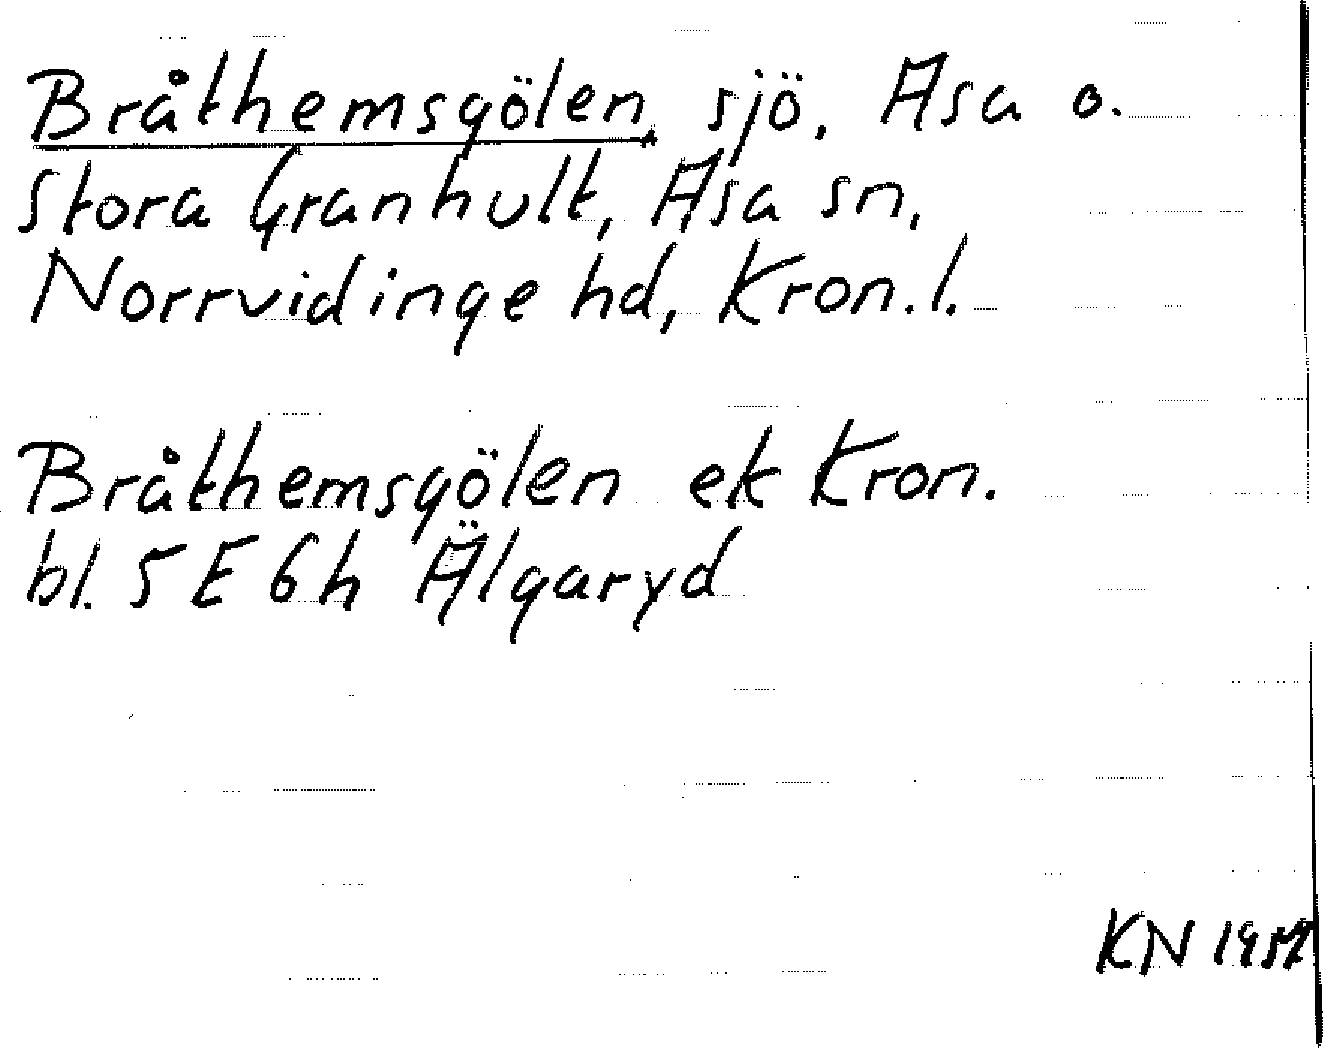 Bråthemsgölen, sjö, Asa o.
Stora Granhult, Asa sn,
Norrvidinge hd, Kron. l.
Bråthemsgölen ek Kron.
bl. 5 E 6 h Älgaryd
KN